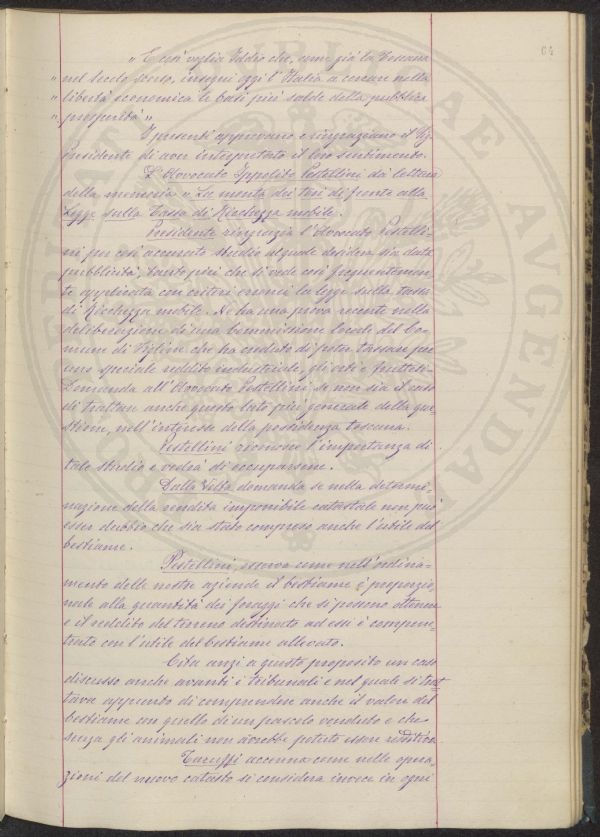 64
" E così voglia Iddio che, come già la Toscana
" nel secolo scorso, insegni oggi l'Italia a cercare nella
" libertà economica le basi più salde della pubblica
" prosperità "
I presenti approvano e ringraziano il Sig.
Presidente di aver interpretato il loro sentimento.
L'Avvocato Ippolito Pestellini dà lettura
della memoria " La monta dei tori di fronte alla
Legge sulla Tassa di Ricchezza mobile.
Presidente ringrazia l'Avvocato Pestelli-
ni per così accurato studio al quale desidera sia data
pubblicità, tanto più che si vede così frequentemen-
te applicata con criteri erronei la legge sulla tassa
di Ricchezza mobile. Ne ha una prova recente nella
deliberazione di una Commissione locale del Co-
mune di che ha creduto di poter tassare per
uno speciale reddito industriale, gli orti e frutteti.
Domanda all'Avvocato Pestellini se non sia il caso
di trattare anche questo lato più generale della que-
stione, nell'interesse della possidenza toscana.
Pestellini riconosce l'importanza di
tale studio e vedrà di occuparsene.
Dalla Volta domanda se nella determi-
nazione della rendita imponibile catastale non può
esser dubbio che sia stato compreso anche l'utile del
bestiame.
Pestellini, osserva come nell'ordina-
mento delle nostre aziende il bestiame è proporzio-
nale alla quantità dei foraggi che si possono ottenere
e il reddito del terreno destinato ad essi è compene-
trato con l'utile del bestiame allevato.
Cita anzi a questo proposito un caso
discusso anche avanti i tribunali e nel quale si trat-
tava appunto di comprendere anche il valore del
bestiame con quello di un pascolo venduto e che
senza gli animali non avrebbe potuto essere
accenna come nelle opera-
zioni del nuovo catasto si considera invece in ogni